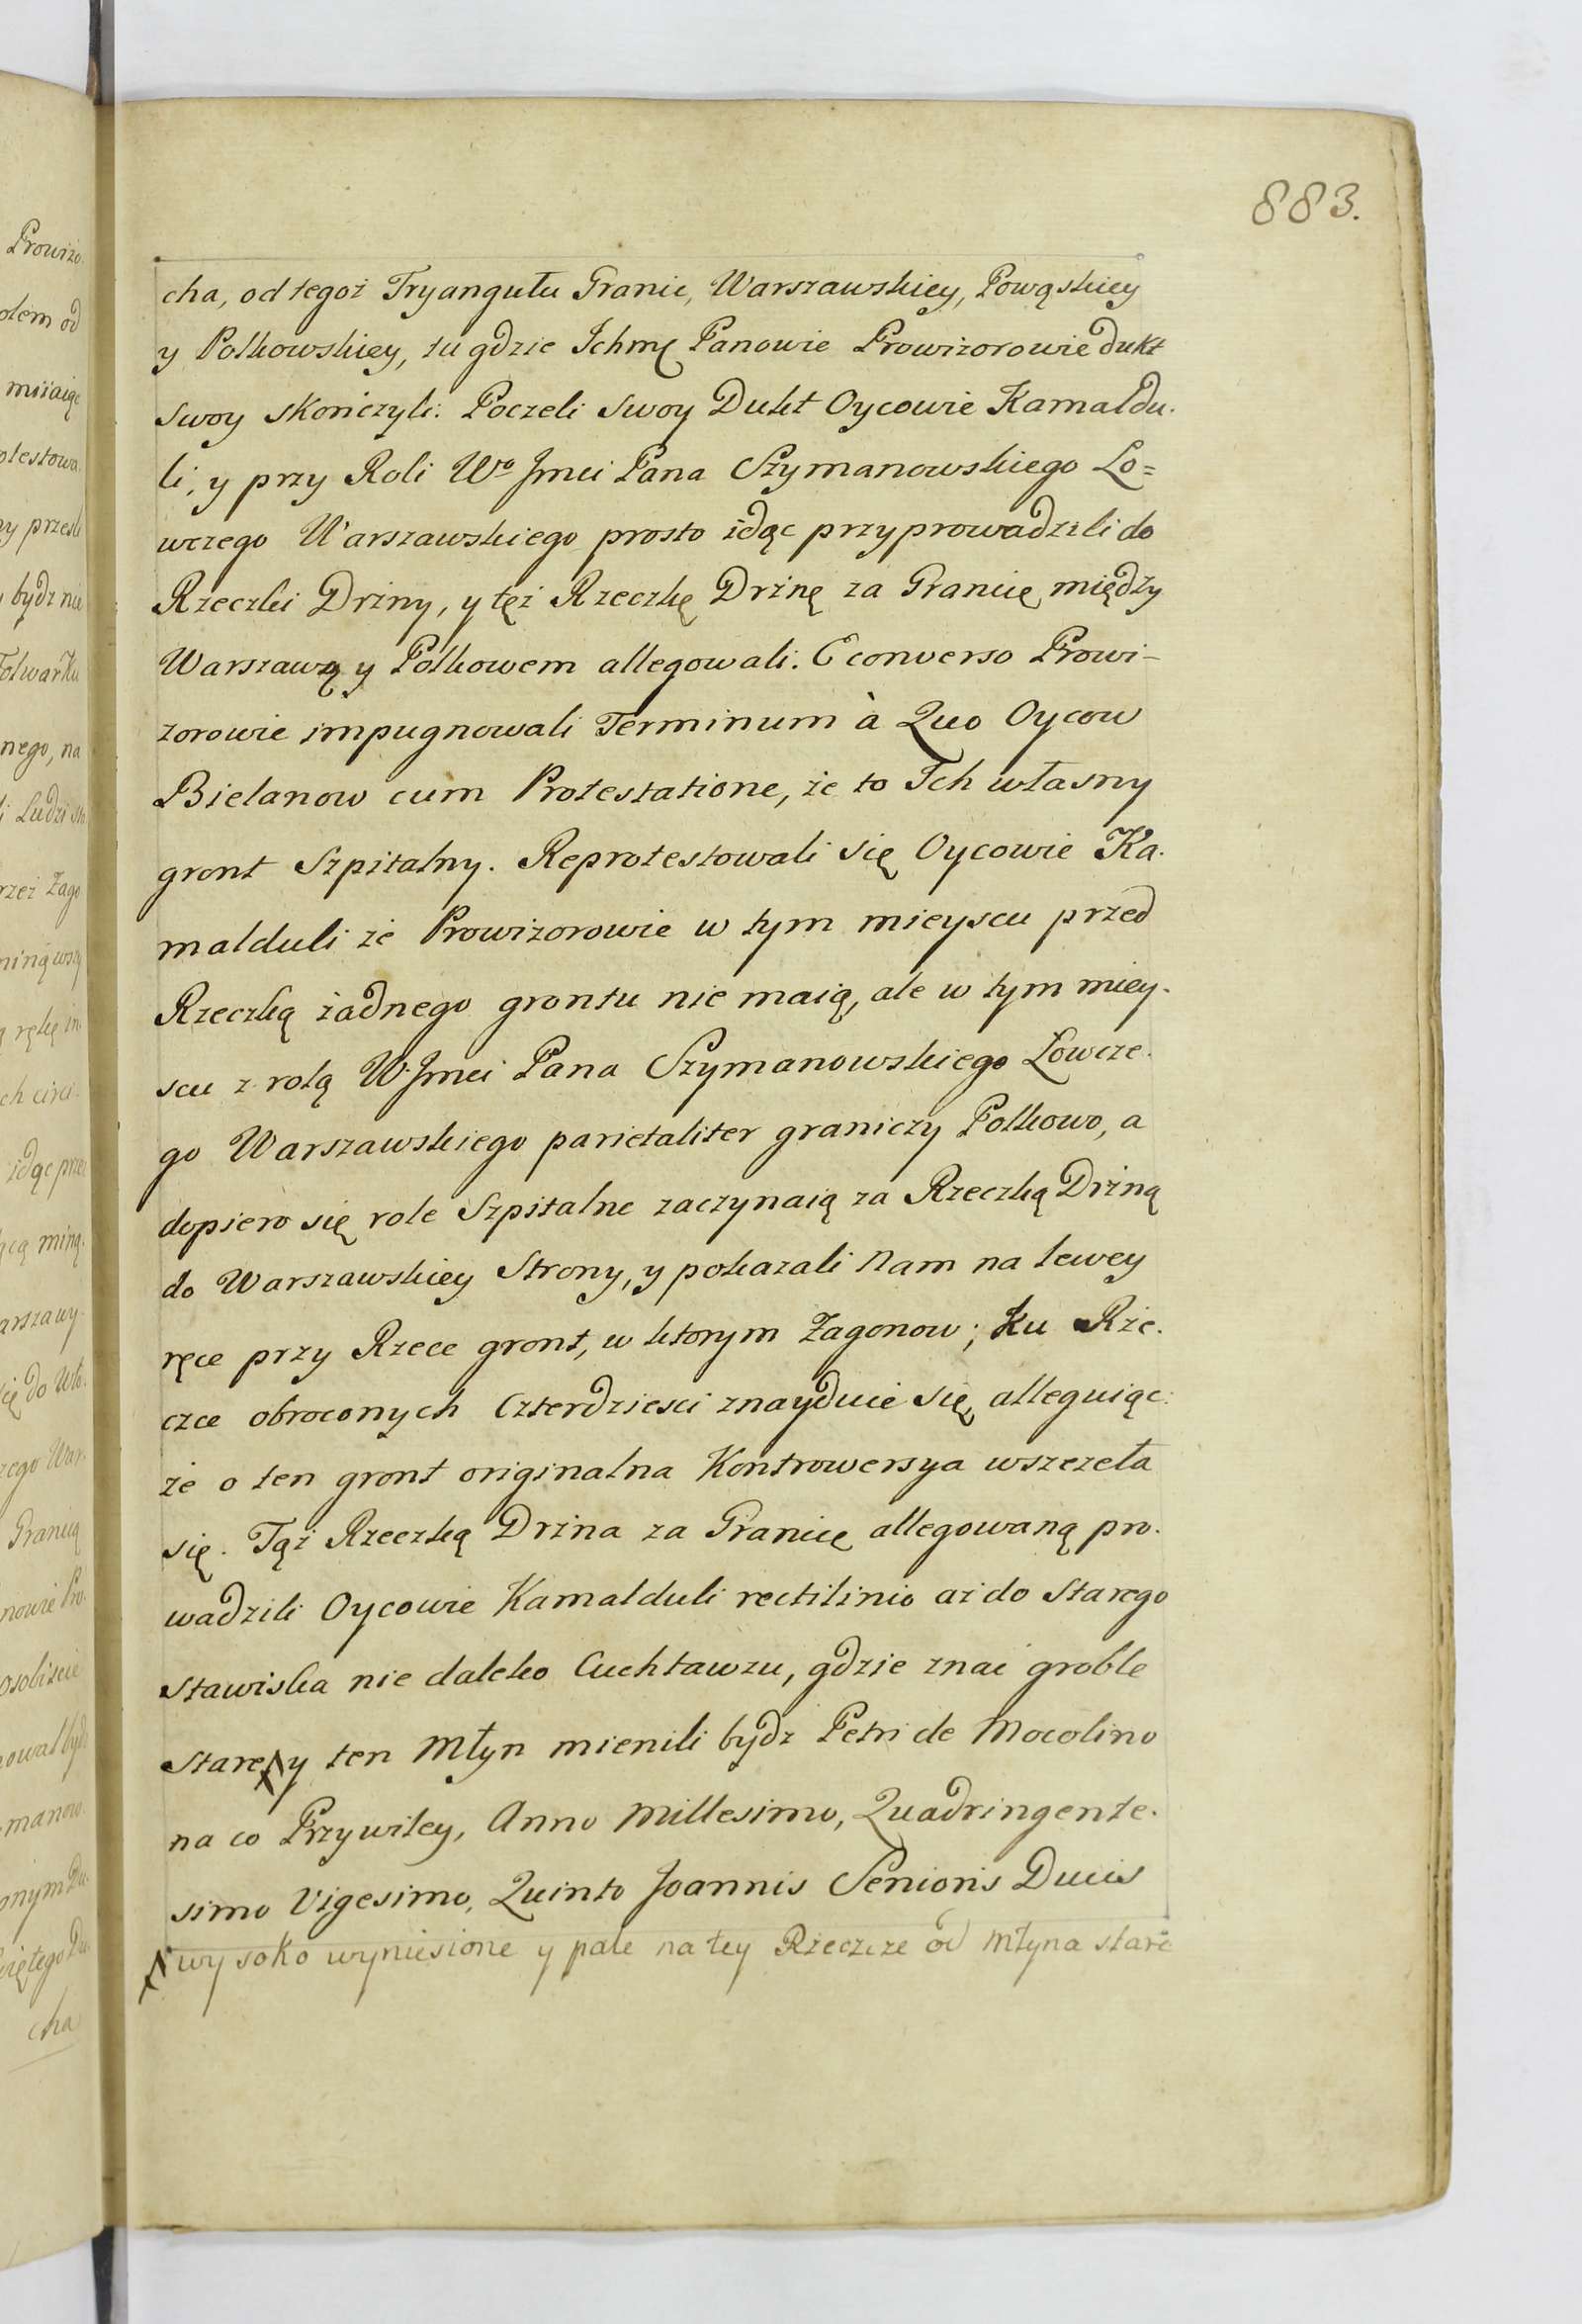 883.
cha, od tegoż Tryangułu Granic, Warszawskiey, Powąskiey
y Polkowskiey, tu gdzie Ichmę Panowie Prowizorowie dukt
swoy skończyli. Poczeli swoy Dukt Oycowie Kamaldu.
li, y przy Roli Wo Jmci Pana Szymanowskiego Lo=
wczego Warszawskiego prosto idąc przyprowadzili do
Rzeczki Drżny, y tęż Rzeczkę Drżnę za Granicę między
Warszawą y Polkowem allegowali. E converso Prowi-
zorowie impugnowali Terminum à Quo Oycow
Bielanow cum Protestatione, że to Ich własny
gront Szpitalny. Reprotestowali się Oycowie Ka.
malduli że Prowizorowie w tym mieyscu przed
Rzeczką żadnego grontu nie maią, ale w tym miey.
scu z rolą W. Jmci Pana Szymanowskiego Łowcze.
go Warszawskiego parietaliter graniczy Polkowo, a
dopiero się role Szpitalne zaczynaią za Rzeczką Drżną
do Warszawskiey Strony, y pokazali Nam na lewey
ręce przy Rzece gront, w ktorym Zagonow; ku Rze.
czce obroconych Czterdziesci znayduie się, alleguiąc:
że o ten gront originalna Kontrowersya wszczeła
się. Tąż Rzeczką Drżna za Granicę allegowaną pro.
wadzili Oycowie Kamalduli rectilinio aż do Starego
Stawiska nie daleko Cuchtawzu, gdzie znac groble
stare X y ten Młyn mienili bydz Petri de Mocolino
na co Przywiley, Anno Millesimo, Quadringente.
simo Vigesimo, Quinto Joannis Senioris Ducis
X wysoko wyniesione y pale na tey Rzeczce od Młyna stare